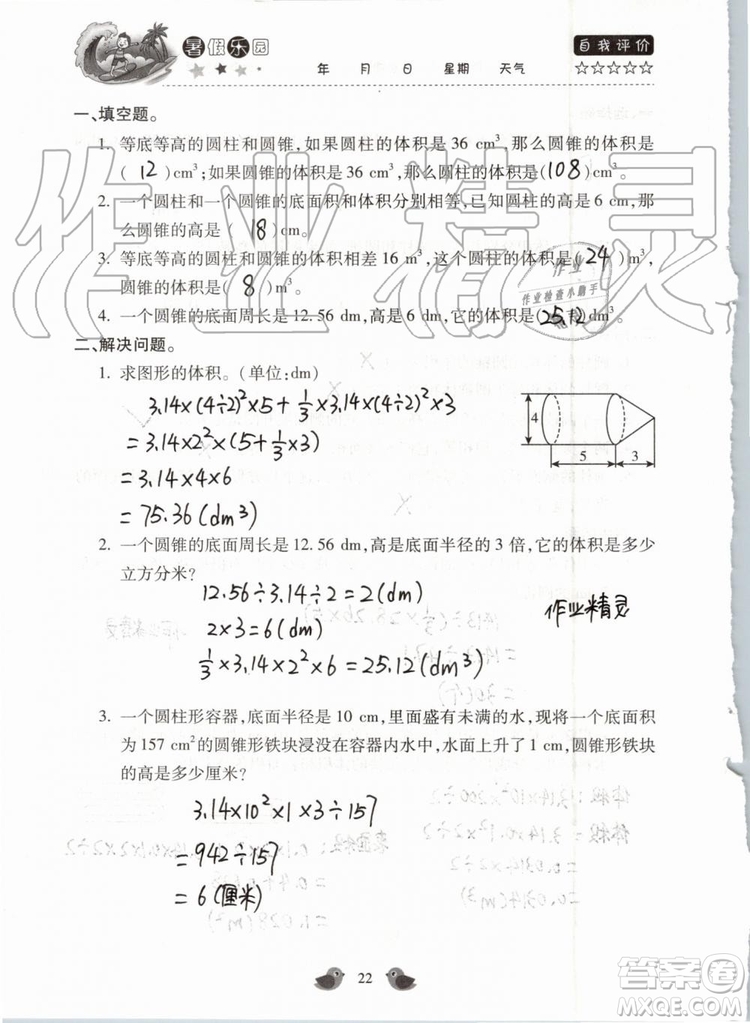 暑假乐园
自我评价
年 月 日 星期 天气
☆☆☆☆☆
一、填空题。
1. 等底等高的圆柱和圆锥,如果圆柱的体积是 36 cm³,那么圆锥的体积是
( 12 )cm³;如果圆锥的体积是 36 cm³,那么圆柱的体积是( 108 )cm³。
2. 一个圆柱和一个圆锥的底面积和体积分别相等,已知圆柱的高是 6 cm,那
么圆锥的高是( 18 )cm。
3. 等底等高的圆柱和圆锥的体积相差 16 m³,这个圆柱的体积是( 24 )m³,
圆锥的体积是( 8 )m³。
4. 一个圆锥的底面周长是 12.56 dm,高是 6 dm,它的体积是( 25.12 )dm³。
二、解决问题。
1. 求图形的体积。(单位:dm)
3.14×(4÷2)²×5+1/3×3.14×(4÷2)²×3
=3.14×2²×(5+1/3×3)
=3.14×4×6
=75.36(dm³)
4
5
3
2. 一个圆锥的底面周长是 12.56 dm,高是底面半径的 3 倍,它的体积是多少
立方分米?
12.56÷3.14÷2=2(dm)
2×3=6(dm)
1/3×3.14×2²×6=25.12(dm³)
作业精灵
3. 一个圆柱形容器,底面半径是 10 cm,里面盛有未满的水,现将一个底面积
为 157 cm²的圆锥形铁块浸没在容器内水中,水面上升了 1 cm,圆锥形铁块
的高是多少厘米?
3.14×10²×1×3÷157
=942÷157
=6(厘米)
22
作业精灵
作业
作业检查小助手
答案圈
MXQE.COM